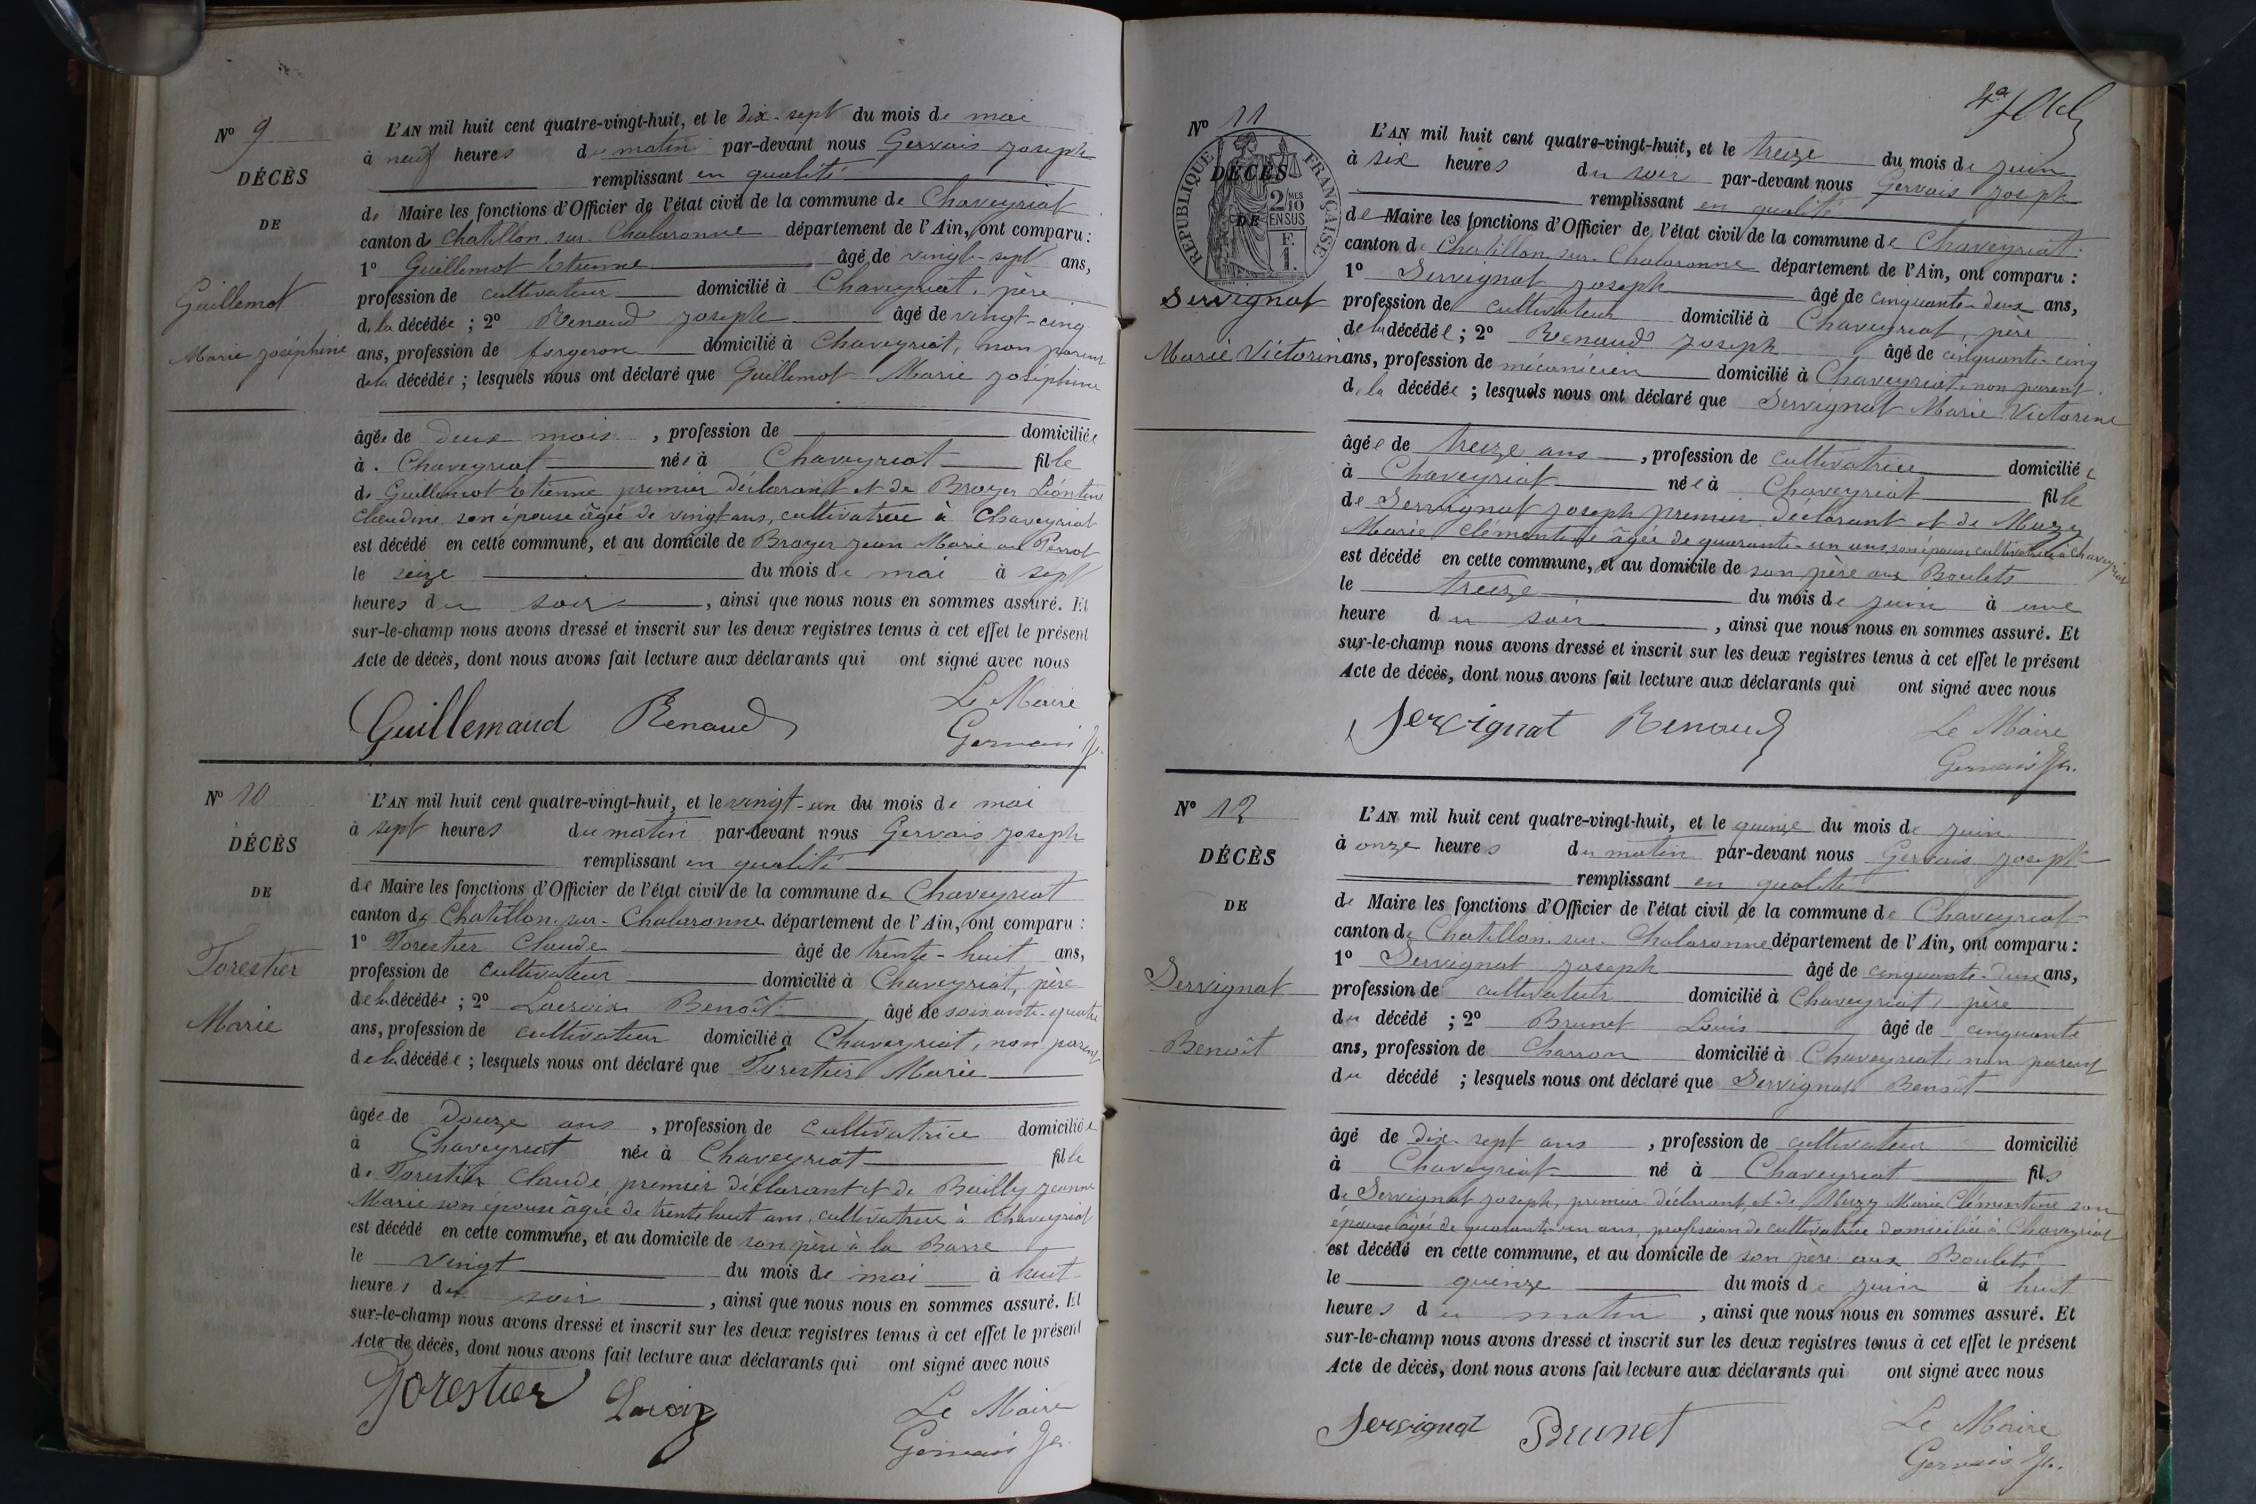 Nº 9
DÉCÈS
DE
Guillemot
Marie Joséphine
L'AN mil huit cent quatre-vingt-huit, et le dix-sept du mois de mai
à neuf heures du matin par-devant nous Gervais Joseph
remplissant en qualité
de Maire les fonctions d'Officier de l'état civil de la commune de Chaveyriat
canton de Chatillon-sur-Chalaronne département de l'Ain, ont comparu :
1º Guillemot Etienne âgé de vingt-sept ans,
profession de cultivateur domicilié à Chaveyriat, père
de la décédée ; 2º Renaud Joseph âgé de vingt-cinq
ans, profession de forgeron domicilié à Chaveyriat, non parent
de la décédée ; lesquels nous ont déclaré que Guillemot Marie Joséphine
âgée de deux mois, profession de domiciliée
à Chaveyriat née à Chaveyriat fille
de Guillemot Etienne premier déclarant et de Broyer Léontine
Claudine son épouse âgée de vingt ans, cultivatrice à Chaveyriat
est décédé en cette commune, et au domicile de Broyer Jean Marie au Perrot
le seize du mois de mai à sept
heures du soir, ainsi que nous nous en sommes assuré. Et
sur-le-champ nous avons dressé et inscrit sur les deux registres tenus à cet effet le présent
Acte de décès, dont nous avons fait lecture aux déclarants qui ont signé avec nous
Le Maire
Guillemaud Renaud Gervais Jh.
Nº 10
DÉCÈS
DE
Forestier
Marie
L'AN mil huit cent quatre-vingt-huit, et le vingt-un du mois de mai
à sept heures du matin par-devant nous Gervais Joseph
remplissant en qualité
de Maire les fonctions d'Officier de l'état civil de la commune de Chaveyriat
canton de Chatillon-sur-Chalaronne département de l'Ain, ont comparu :
1º Forestier Claude âgé de trente-huit ans,
profession de cultivateur domicilié à Chaveyriat, père
de la décédée ; 2º Lacroix Benoît âgé de soixante-quatre
ans, profession de cultivateur domicilié à Chaveyriat, non parent
de la décédée ; lesquels nous ont déclaré que Forestier Marie
âgée de douze ans, profession de cultivatrice domiciliée
à Chaveyriat née à Chaveyriat fille
de Forestier Claude premier déclarant et de Bailly Jeanne
Marie son épouse âgée de trente huit ans, cultivatrice à Chaveyriat
est décédé en cette commune, et au domicile de son père à la Barre
le vingt du mois de mai à huit
heures du soir, ainsi que nous nous en sommes assuré. Et
sur-le-champ nous avons dressé et inscrit sur les deux registres tenus à cet effet le présent
Acte de décès, dont nous avons fait lecture aux déclarants qui ont signé avec nous
Forestier Le Maire
Gervais Jh.
Nº 11
RÉPUBLIQUE FRANÇAISE
2/10MES EN SUS
F. 1.
DÉCÈS
DE
Servignat
Marie Victorine
L'AN mil huit cent quatre-vingt-huit, et le treize du mois de juin
à six heures du soir par-devant nous Gervais Joseph
remplissant en qualité
de Maire les fonctions d'Officier de l'état civil de la commune de Chaveyriat
canton de Chatillon-sur-Chalaronne département de l'Ain, ont comparu :
1º Servignat Joseph âgé de cinquante-deux ans,
profession de cultivateur domicilié à Chaveyriat, père
de la décédée ; 2º Renaud Joseph, âgé de cinquante-cinq
ans, profession de mécanicien domicilié à Chaveyriat non parent
de la décédée ; lesquels nous ont déclaré que Servignat Marie Victorine
âgée de treize ans, profession de cultivatrice domiciliée
à Chaveyriat née à Chaveyriat fille
de Servignat Joseph premier déclarant et de Muzy
Marie Clémentine âgée de quarante-un ans son épouse cultivatrice à Chaveyriat
est décédé en cette commune, et au domicile de son père aux Boulets
le treize du mois de juin à une
heure du soir, ainsi que nous nous en sommes assuré. Et
sur-le-champ nous avons dressé et inscrit sur les deux registres tenus à cet effet le présent
Acte de décès, dont nous avons fait lecture aux déclarants qui ont signé avec nous
Servignat Renaud Le Maire
Gervais Jh.
Nº 12
DÉCÈS
DE
Servignat
Benoît
L'AN mil huit cent quatre-vingt-huit, et le quinze du mois de juin
à onze heures du matin par-devant nous Gervais Joseph
remplissant en qualité
de Maire les fonctions d'Officier de l'état civil de la commune de Chaveyriat
canton de Chatillon-sur-Chalaronne département de l'Ain, ont comparu :
1º Servignat Joseph âgé de cinquante-deux ans,
profession de cultivateur domicilié à Chaveyriat, père
du décédé ; 2º Brunet Louis âgé de cinquante
ans, profession de Charron domicilié à Chaveyriat non parent
du décédé ; lesquels nous ont déclaré que Servignat Benoît
âgé de dix-sept ans, profession de cultivateur domicilié
à Chaveyriat né à Chaveyriat fils
de Servignat Joseph, premier déclarant, et de Muzy Marie Clémentine son
épouse âgée de quarante-un ans, profession de cultivatrice domiciliée à Chaveyriat
est décédé en cette commune, et au domicile de son père aux Boulets
le quinze du mois de juin à huit
heures du matin, ainsi que nous nous en sommes assuré. Et
sur-le-champ nous avons dressé et inscrit sur les deux registres tenus à cet effet le présent
Acte de décès, dont nous avons fait lecture aux déclarants qui ont signé avec nous
Servignat Brunet Le Maire
Gervais Jh.